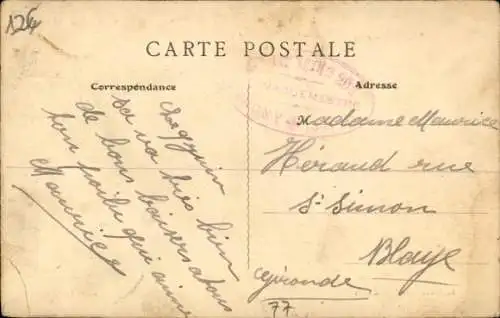 124
CARTE POSTALE
Correspondance
Adresse
sa va bien bien
de bons baisers a tous
ton poilu qui aime
Maurice
Madame Maurice
Héraud rue
St-Simon
Blaye
Gironde
77